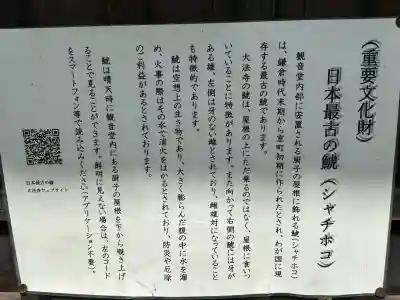 （重要文化財）
日本最古の鯱（シャチホコ）
観音堂内部に安置される厨子の屋根に飾れる鯱（シャチホコ）
は、鎌倉時代末期から室町初期に作られたとされ、わが国に現
存する最古の鯱であります。
大法寺の鯱は、屋根の上にただ乗るのではなく、屋根に食いつ
いていることに特徴があります。また向かって右側の鯱には牙が
ある雄、左側は牙のない雌とされており、雌雄対になっていること
も特徴的であります。
鯱は空想上の生き物であり、大きく膨らんだ腹の中に水を溜
め、火事の際はその水で消火をはかるとされており、防災や厄除
のご利益があるとされております。
鯱は晴天時に観音堂内にある厨子の屋根を下から覗き上げ
ることで見ることができます。鮮明に見えない場合は、左のコード
をスマートフォン等で読み込みください（アプリケーション不要）。
日本最古の鯱
大法寺ウェブサイト